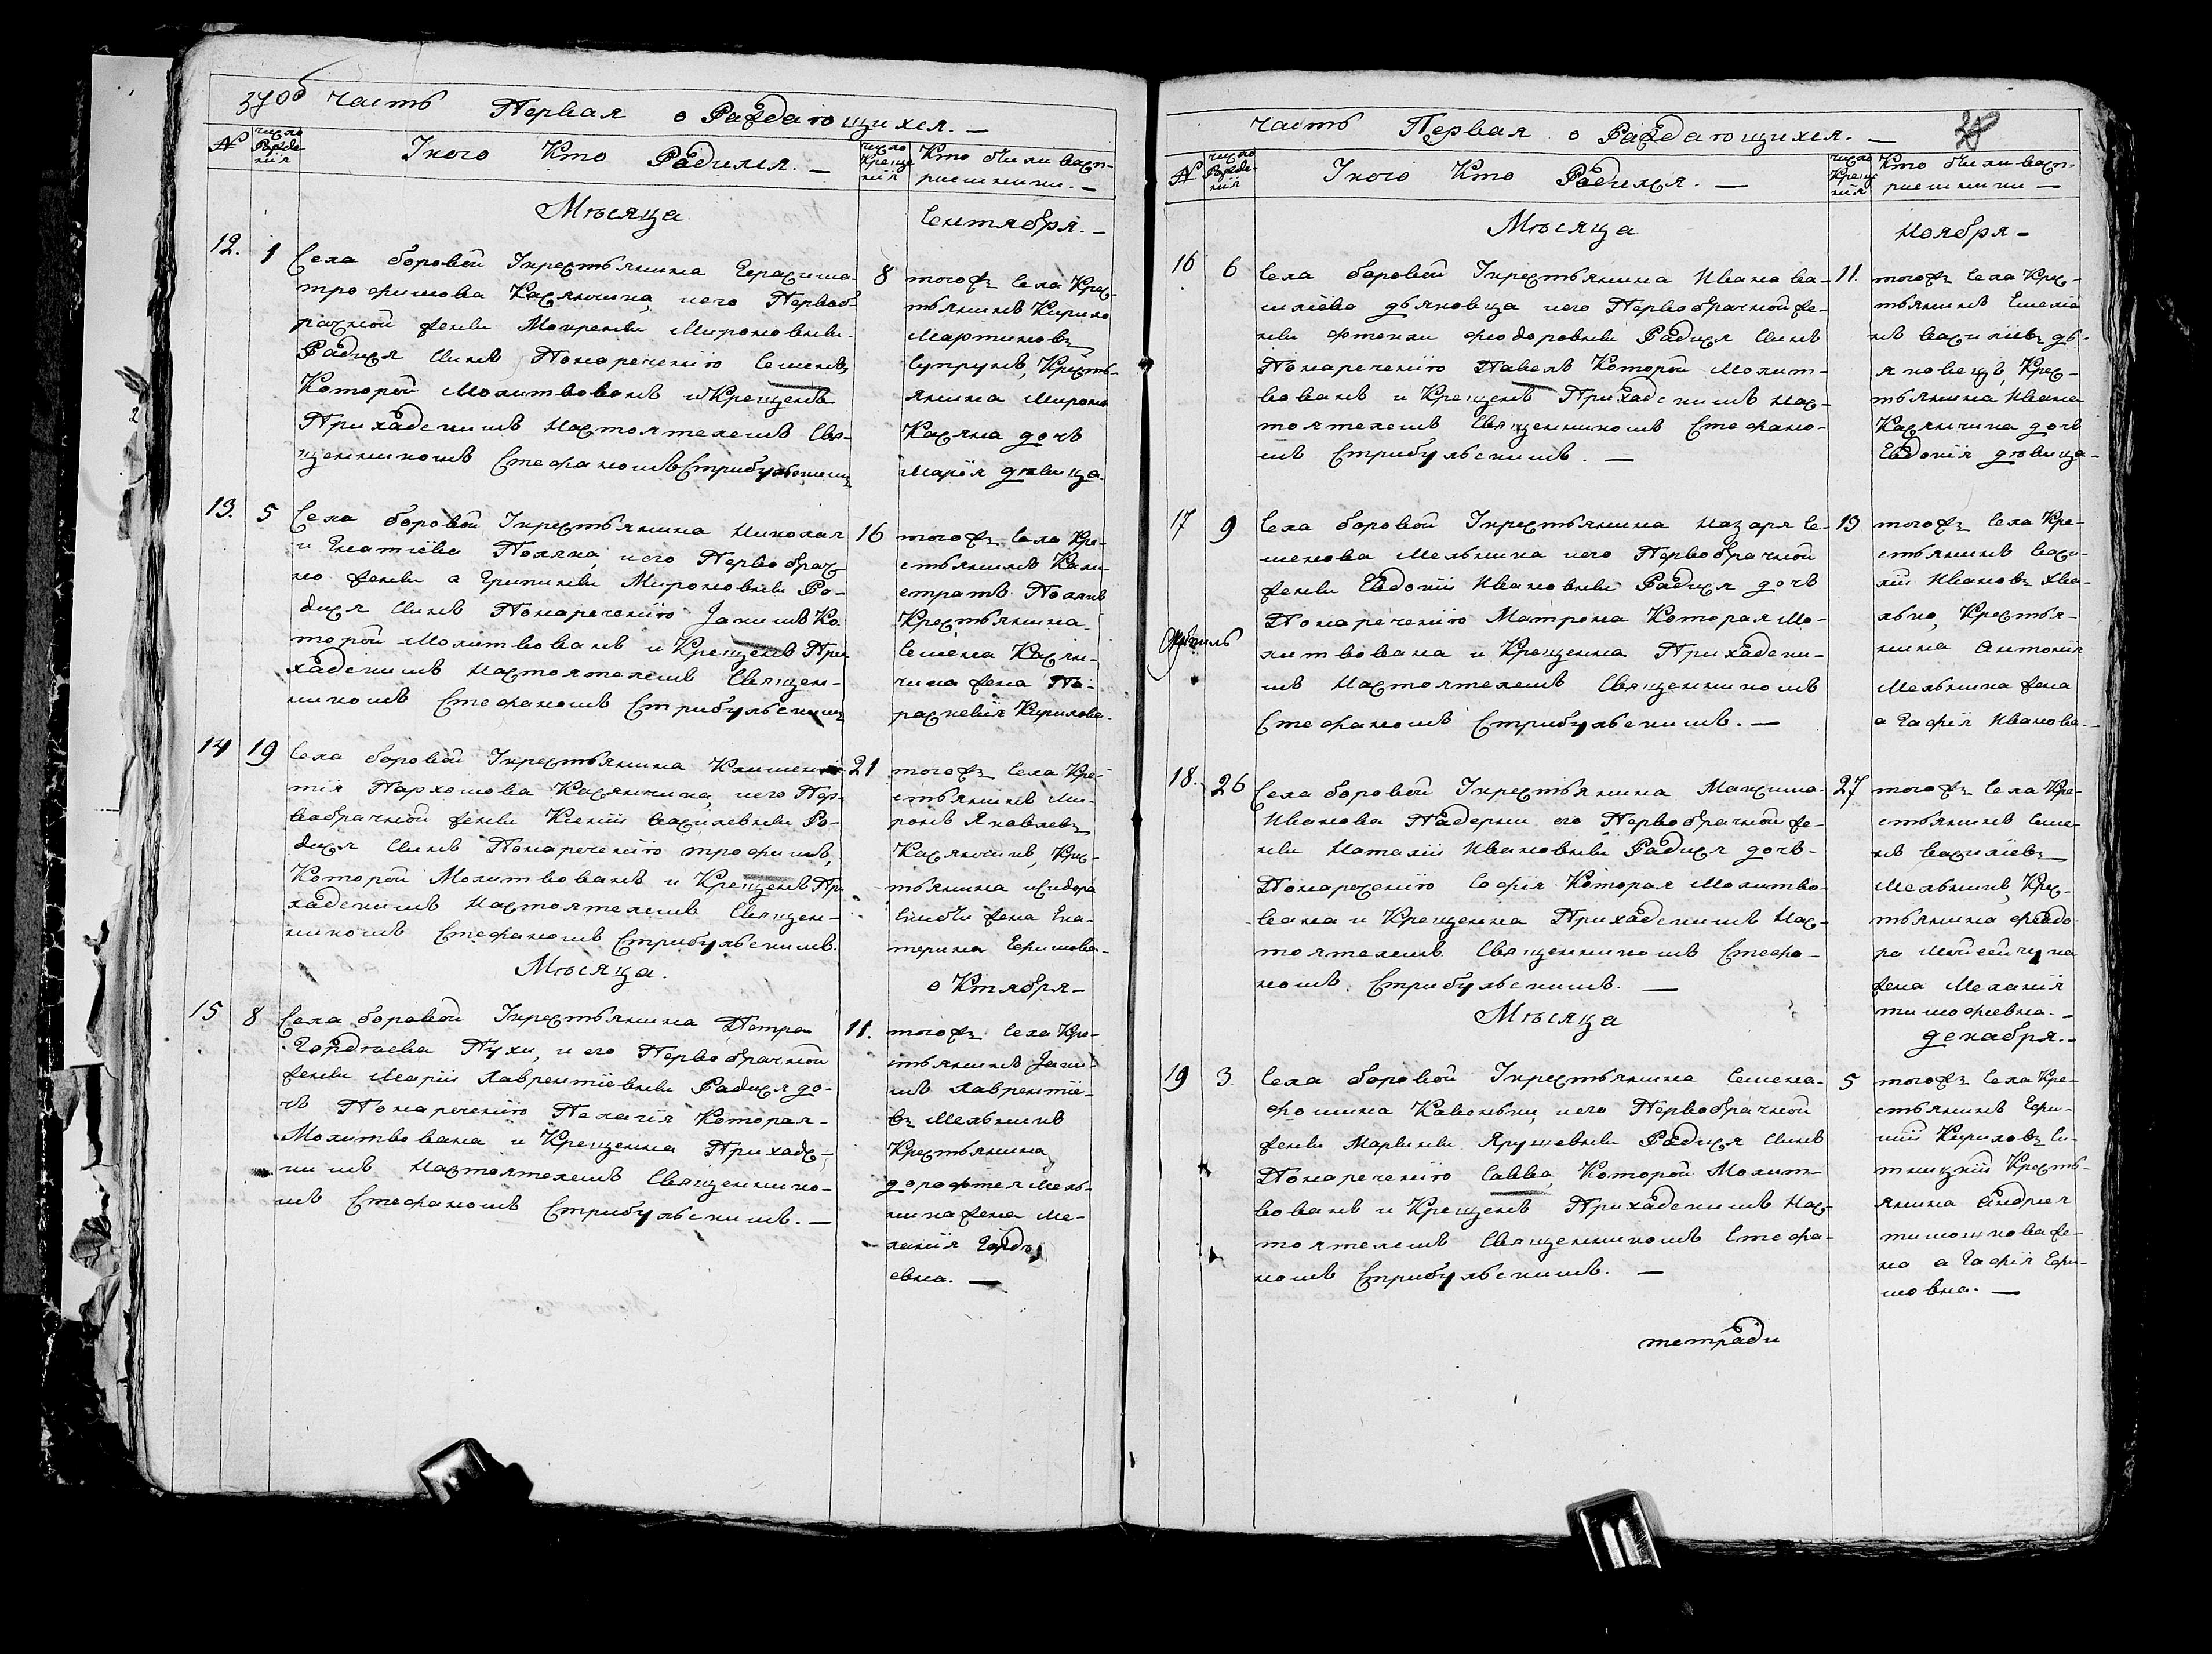 37об Часть Первая о Раждающихся. —
№
число Рожде-
нія
У кого Кто Родился. —
число
Креще
нія
Кто были Восп-
риемники. —
Мѣсяца Сентября. —
12. 1 8
Села боровой У крестьянина Герасима
трофимова Касянчика, иего Первоб
рачной жены Мокрены Мироновны
Родился Сынъ Понареченію Семенъ
Которой Молитвованъ и Крещенъ
Приходскимъ Настоятелемъ Свя-
щенникомъ Стефаномъ Стрибульскимъ
тогожъ Села Крес-
тьянинъ Кирило
Мартиновъ
Супрунъ, Кресть-
янина Мирона
Касяна дочь
Марія девица.
13. 5 16
Села боровой У крестьянина Николая
Игнатіева Поляка, иего Первобрач
но жены Агрипины Мироновны Ро-
дился Сынъ Понареченію Якимъ Ко
торой Молитвованъ и Крещенъ При
ходскимъ Настоятелемъ Священ-
никомъ Стефаномъ Стрибульскимъ
тогожъ Села Кре-
стьянинъ Кали-
стратъ Полякъ
Крестьянина
Семена Касян-
чика жена Па-
раскевія Кирилова.
14 19 21
Села боровой У крестьянина Климен
тія Пархомова Касянчика, иего Пер-
вобрачной жены Ксеніи Василевны Ро-
дился Сынъ Понареченію трофимъ,
Которой Молитвованъ и Крещенъ При
ходскимъ Настоятелемъ Священ-
никомъ Стефаномъ Стрибульскимъ.
тогожъ Села Кре-
стьянинъ Ми-
ронъ Яковлевъ
Касянчикъ, Крес-
тьянина исидора
жена Ека-
терина Ефимова. —
Мѣсяца. Октября —
15 8 11.
Села боровой У крестьянина Петра
Гордѣева Пухи, и его Первобрачной
жены Маріи Лаврентіевны Родился до-
чь Понареченію Пелагія Которая
Молитвована и Крещенна Приходс-
кимъ Настоятелемъ Священнико-
мъ Стефаномъ Стрибульскимъ. —
тогожъ Села Кре-
стьянинъ Яки
мъ Лаврентіе-
въ Мельникъ
Крестьянина
дорофтея Мель-
ника жена Ме-
ланія Гордѣ
евна. —
Часть Первая о Раждающихся. — 38
№
число Рожде-
нія
У кого Кто Родился. —
число
Крещ
нія
Кто были Восп-
риемники —
Мѣсяца Ноября —
16 6 11.
Села боровой У крестьянина Ивана Ва-
силіева дьяковца иего Первобрачной же-
ны Фтекли Феодоровны Родился Сынъ
Понареченію Павелъ Которой Молит-
вованъ и Крещенъ Приходскимъ Нас-
тоятелемъ Священникомъ Стефано-
мъ Стрибульскимъ. —
тогожъ Села Крес-
тьянинъ Емелія
нъ Василіевъ дь-
яковецъ, Крес-
тьянина Ивана
Касянчика дочь
Евдокія девица —
17 9 13
Села боровой У крестьянина Назаря Се-
менова Мельника иего Первобрачной
жены Евдокіи Ивановны Родился дочь
Понареченію Матрона Которая Мо-
литвована и Крещенна Приходски-
мъ Настоятелемъ Священникомъ
Стефаномъ Стрибульскимъ. —
тогожъ Села Кре-
стьянинъ Васи-
лій Ивановъ хва-
лько, Крестья-
нина антонія
Мельника жена
агафія Иванова. —
18. 26 27
Села боровой У крестьянина Максима
Иванова Падерки его Первобрачной же-
ны Наталіи Ивановны Родился дочь
Понареченію Софія Которая Молитво-
вана и Крещенна Приходскимъ Нас-
тоятелемъ Священникомъ Стефа-
номъ Стрибульскимъ. —
тогожъ Села Кре-
стьянинъ Семе-
нъ Василіевъ
Мельникъ, Крес-
тьянина федо
ра
жена Меланія
тимофіевна. —
Мѣсяца декабря. —
19 3. 5
Села боровой У крестьянина Семена
фомина Кавоньки, иего Первобрачной
жены Марины Ярушевны Родился Сынъ
Понареченію Савва, Которой Молит-
вованъ и Крещенъ Приходскимъ Нас-
тоятелемъ Священникомъ Стефа-
номъ Стрибульскимъ. —
тогожъ Села Кре-
стьянинъ Ефи-
мій Кириловъ Си-
тницкій Кресть-
янина андрея
тимошкова же-
на агафія Ефи-
мовна. —
тетради